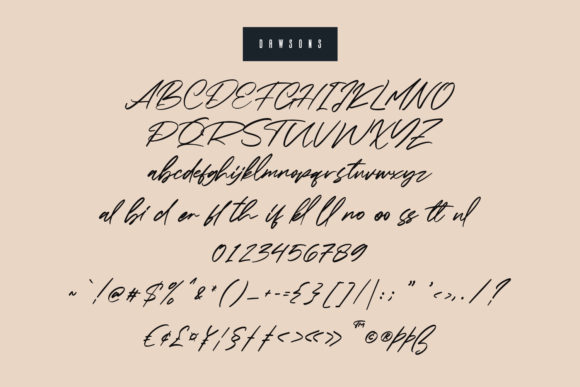 DAWSONS
ABCDEFGHIJKLMNO
PQRSTUVWXYZ
abcdefghijklmnopqrstuvwxyz
al bi d er fl th if kl ll no oo ss tt ul
0123456789
~`!@#$%^&*()_+-={}[]/|:;"'<>,./?
€¢£¤¥¦§ƒ‡<>«»™©®þÞß